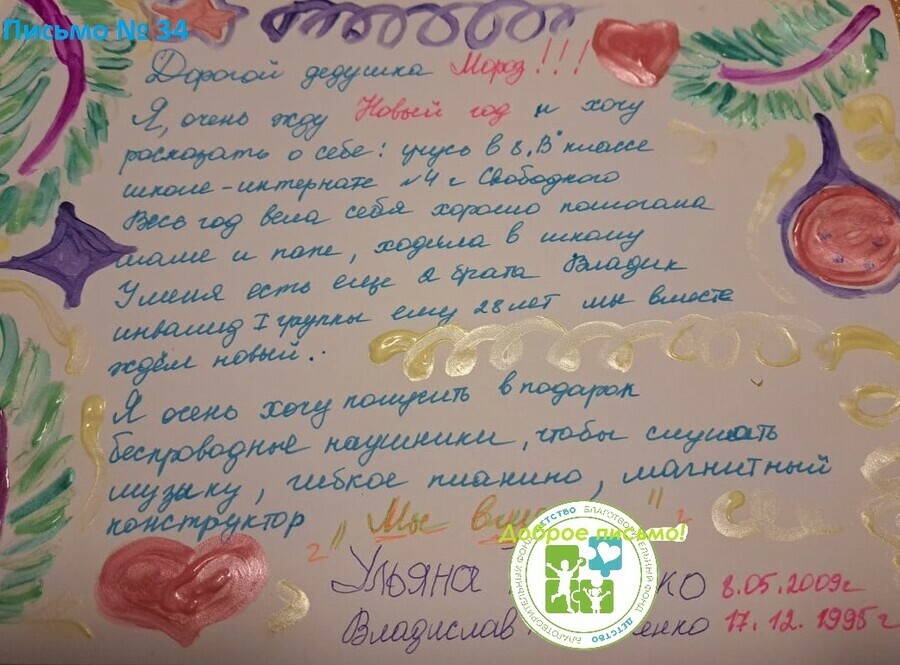 Письмо № 34
Дорогой дедушка Мороз!!!
Я, очень жду Новый год и хочу
росказать о себе: учусь в 8 „В" классе
школе-интернате №4 г Свободного
Весь год вела себя хорошо помогала
маме и папе, ходила в школу
У меня есть еще 2 брата Владик
инвалид I группы ему 28 лет мы вместе
ждём новый..
Я очень хочу полусить в подарок
беспроводные наушники, чтобы слушать
музыку, гибкое пианино, магнитный
конструктор
"Мы
Доброе письмо!
БЛАГОТВОРИТЕЛЬНЫЙ ФОНД ДЕТСТВО
БЛАГОТВОРИТЕЛЬНЫЙ ФОНД ДЕТСТВО
Ульяна ко 8.05.2009г
Владислав енко 17.12.1995г